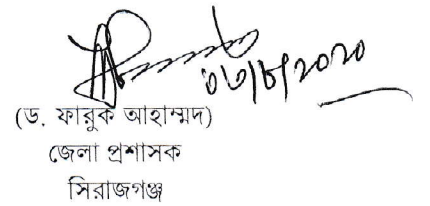 ০৬/৮/২০২০
(ড. ফারুক আহাম্মদ)
জেলা প্রশাসক
সিরাজগঞ্জ